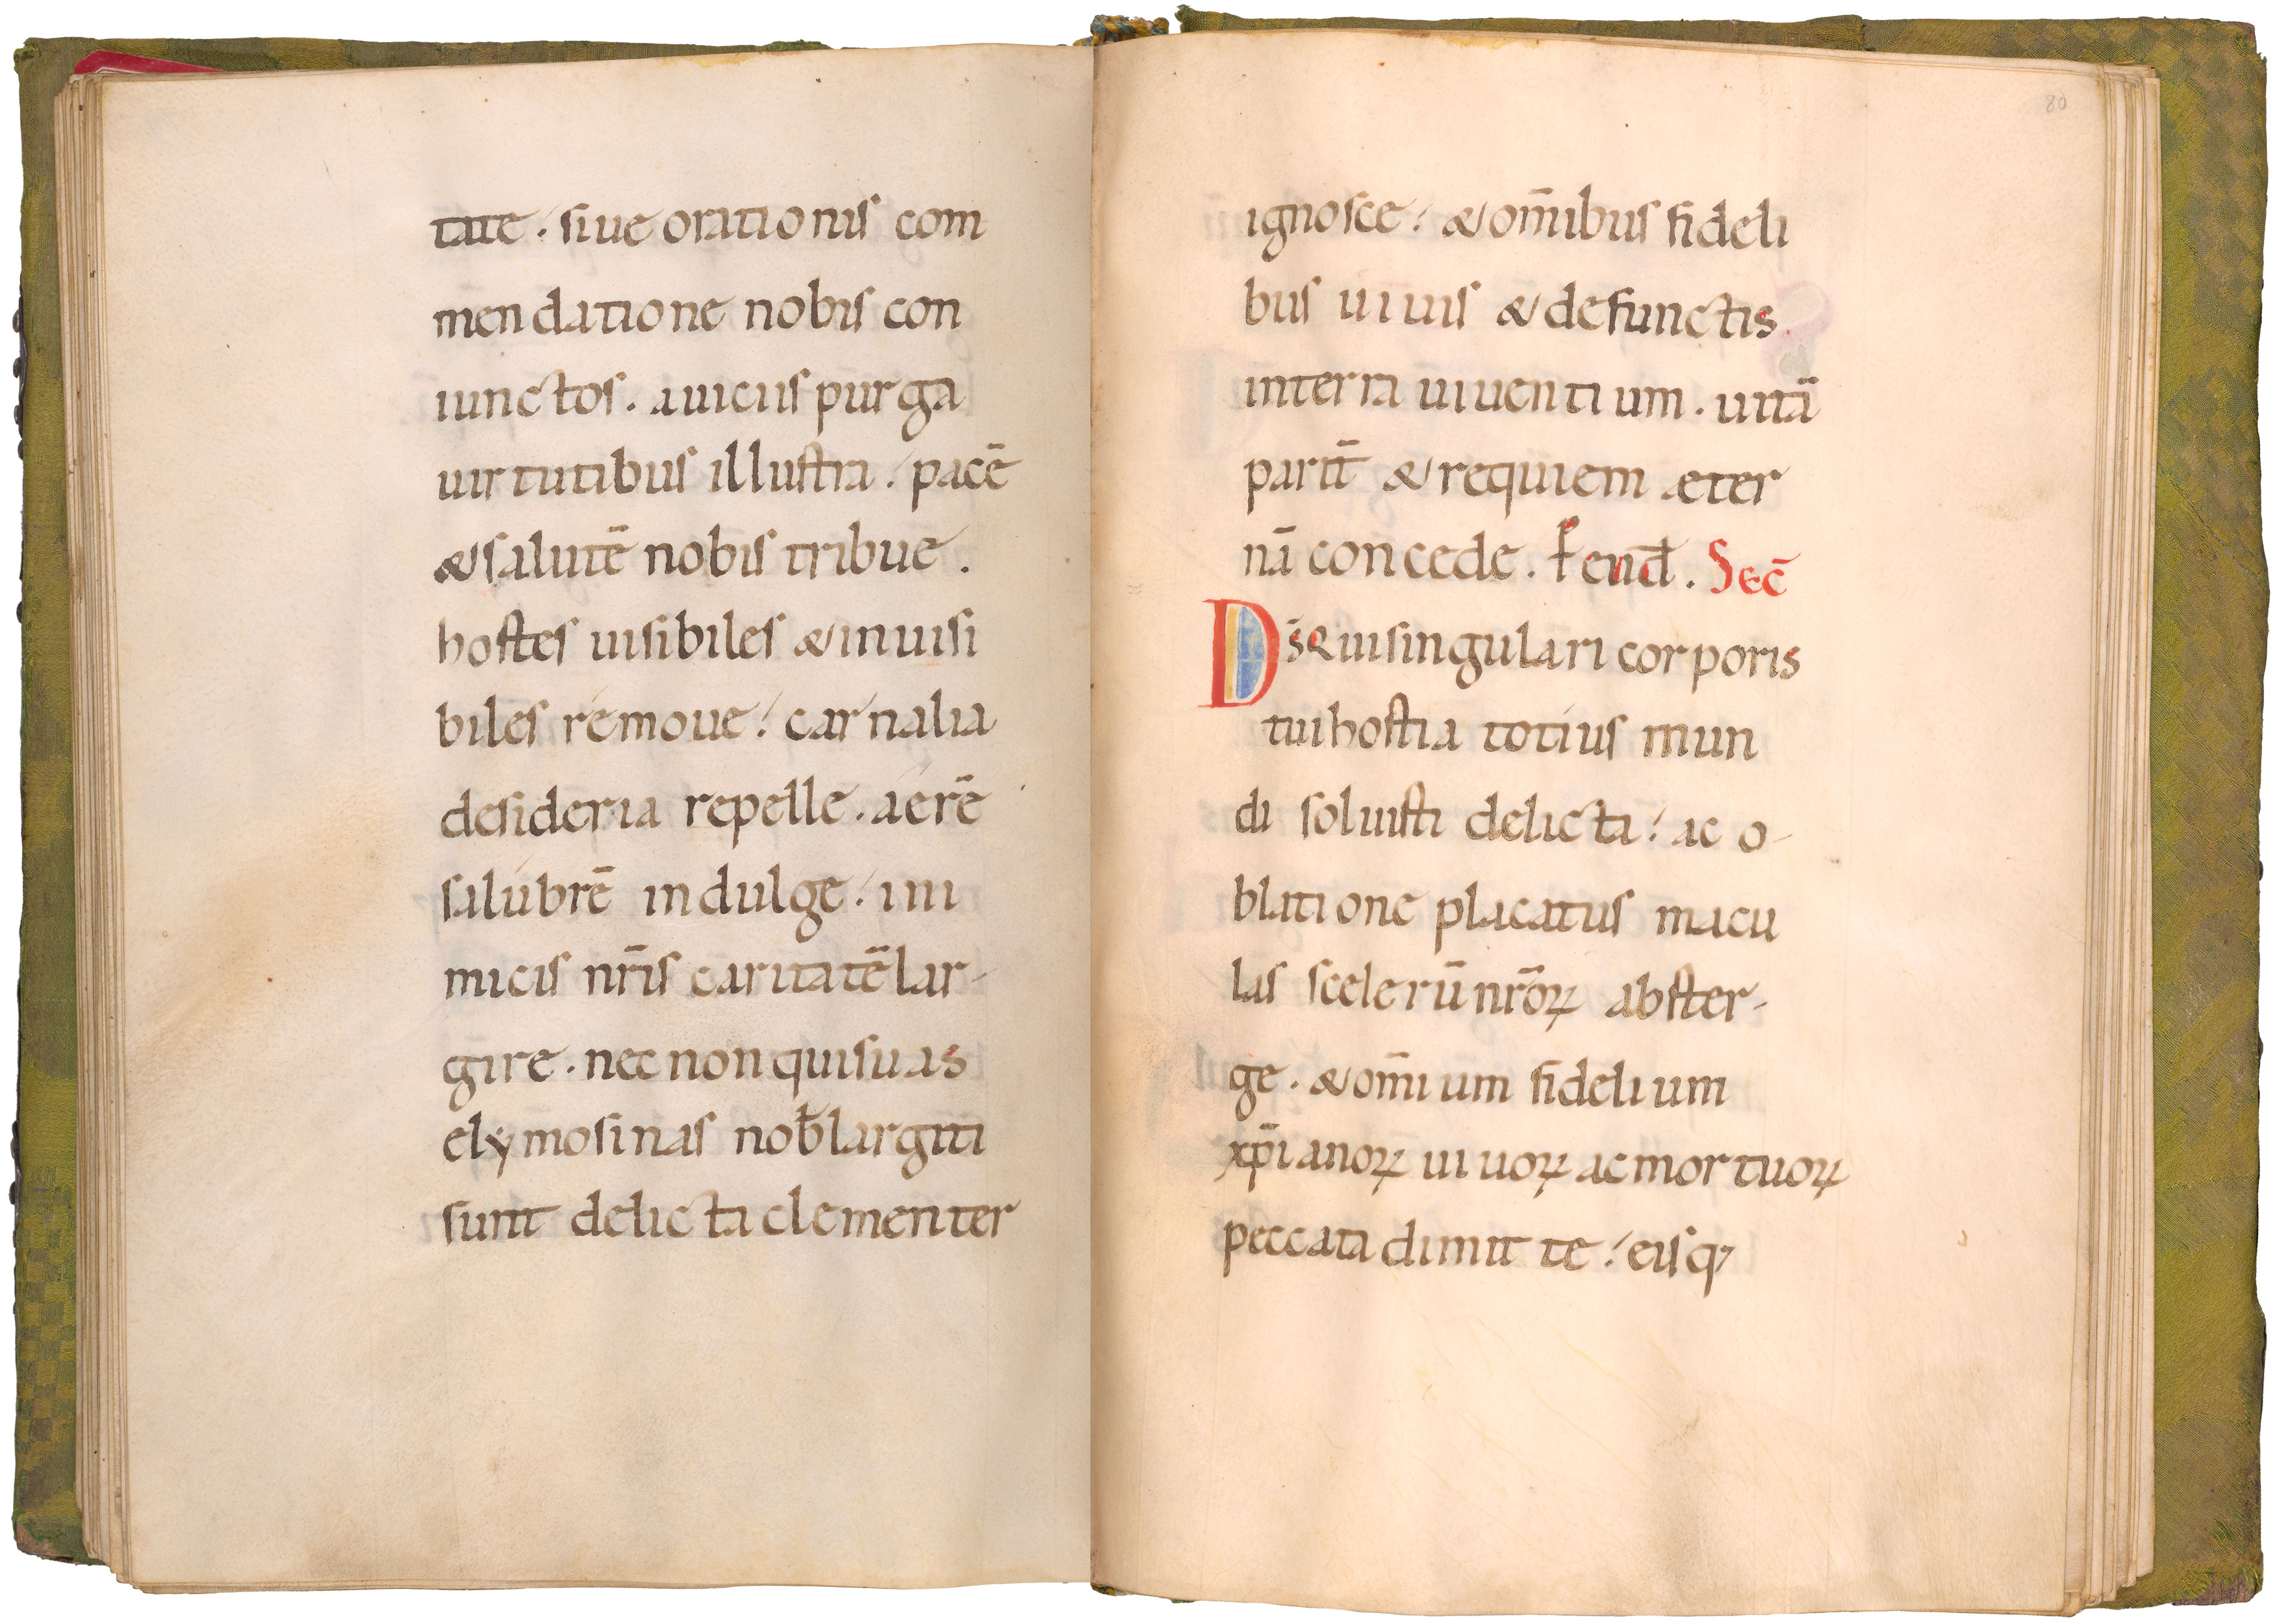 tate. siue orationis com
mendatione nobis con
iunctos. auiciis purga
uirtutibus illustra. pacē
& salutē nobis tribue.
hostes uisibiles & inuisi
biles remoue. carnalia
desideria repelle. aerē
salubrē indulge. ini
micis nr̄is caritatē lar-
gire. nec non qui suas
elymosinas nob̄ largiti
sunt delicta clementer
80
ignosce. & om̄ibus fideli
bus uiuis & defunctis
in terra uiuentium. uitā
parit̄ & requiem æter
nā concede. 
Sec̄
Ds̄ qui singulari corporis
tui hostia totius mun
di soluisti delicta. ac o-
blatione placatus macu
las scelerū nr̄oꝝ abster-
ge. & om̄ium fidelium
xp̄ianoꝝ uiuoꝝ ac mortuoꝝ
peccata dimitte. eisq;